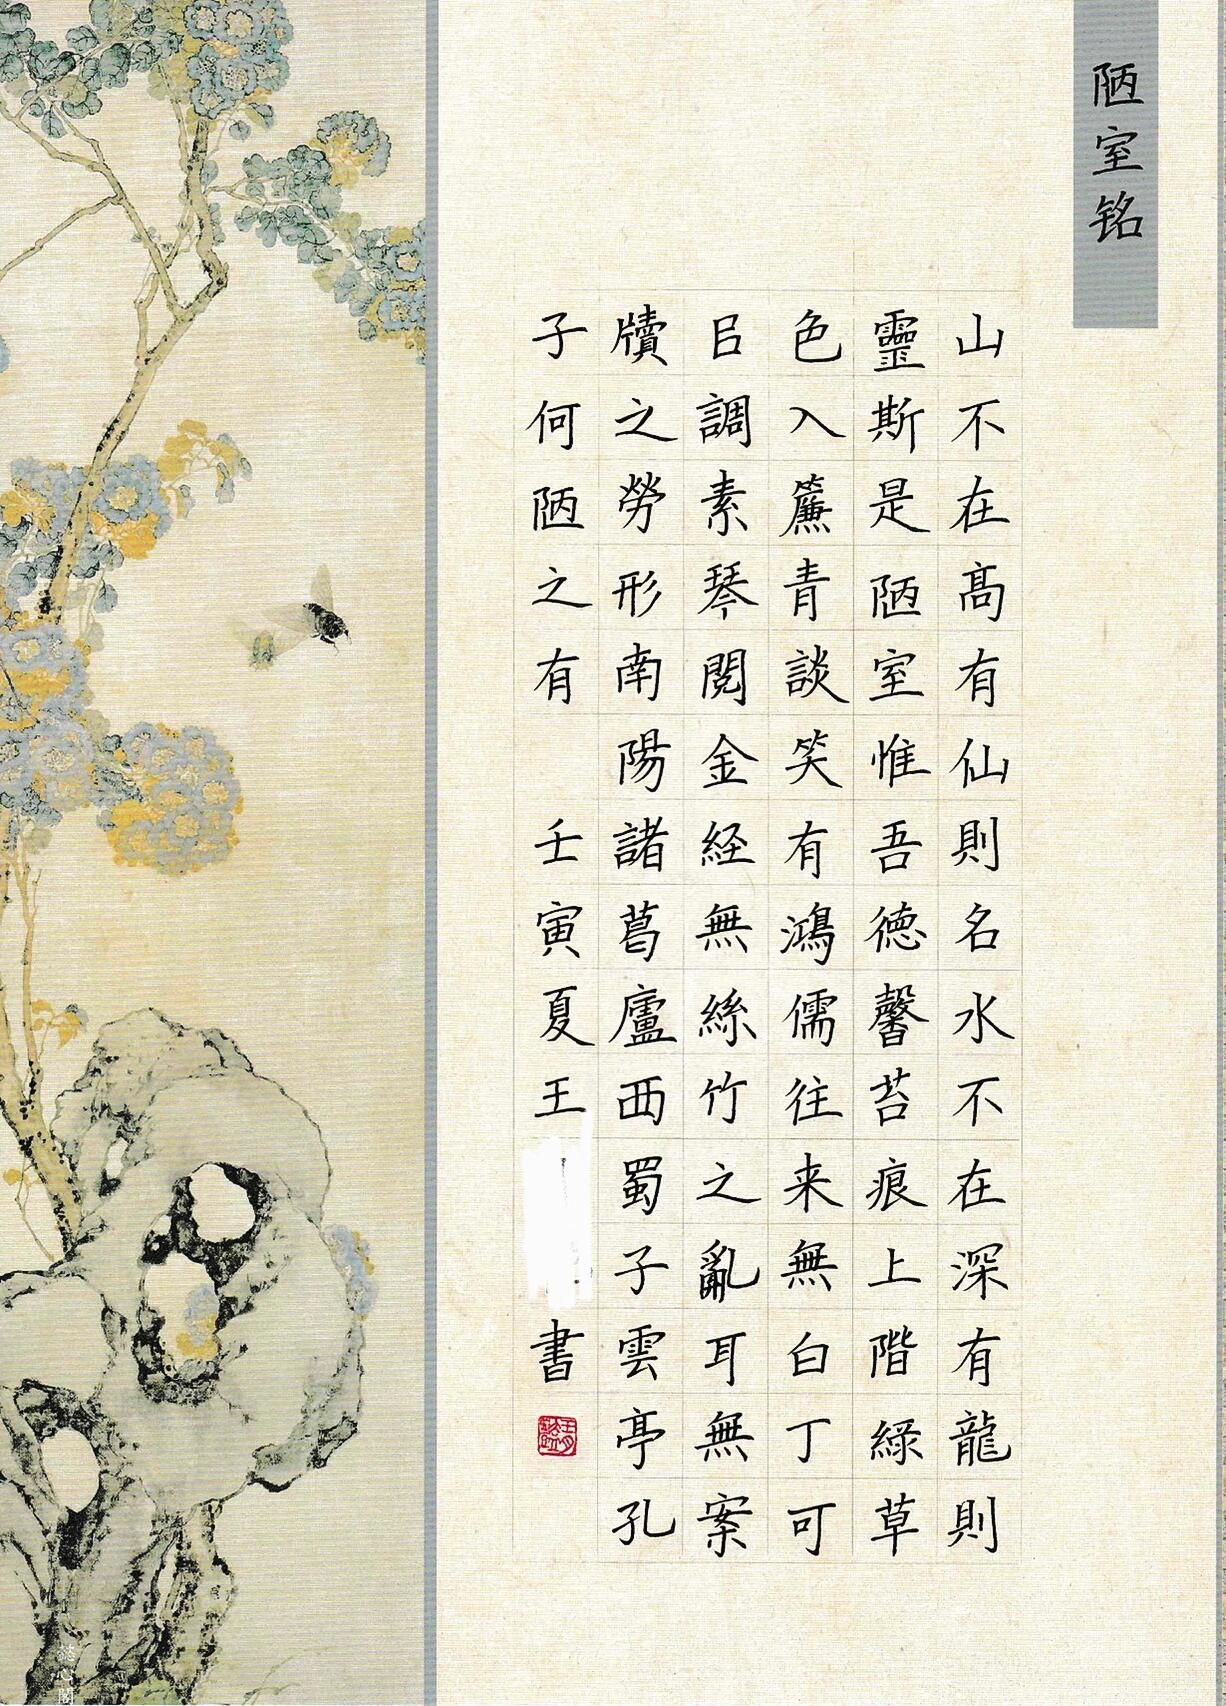 陋室铭
山不在髙有仙則名水不在深有龍則
靈斯是陋室惟吾徳馨苔痕上階緑草
色入簾青談笑有鴻儒往来無白丁可
㠯調素琴閲金経無絲竹之亂耳無案
牘之勞形南陽諸葛廬西蜀子雲亭孔
子何陋之有 壬寅夏王 書